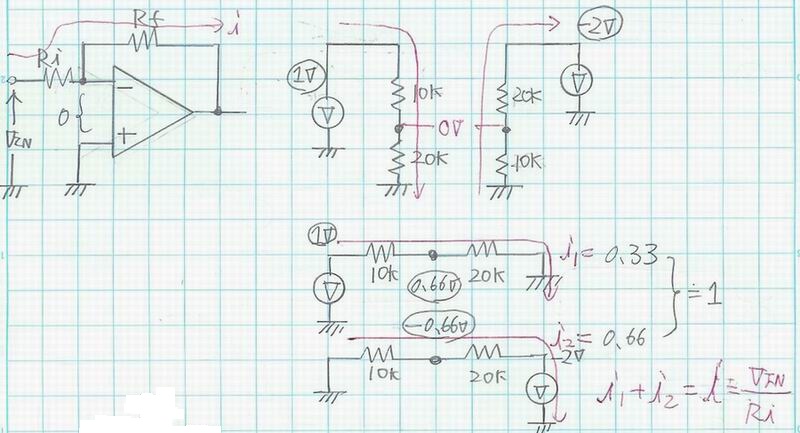 Rf
i
Ri
0
−
+
VIN
1V
V
10K
0V
20K
-2V
V
20K
10K
1V
V
10K
20K
0.66V
i1 = 0.33
≒ 1
-0.66V
i2 = 0.66
10K
20K
-2V
V
i1 + i2 = i = VIN
Ri